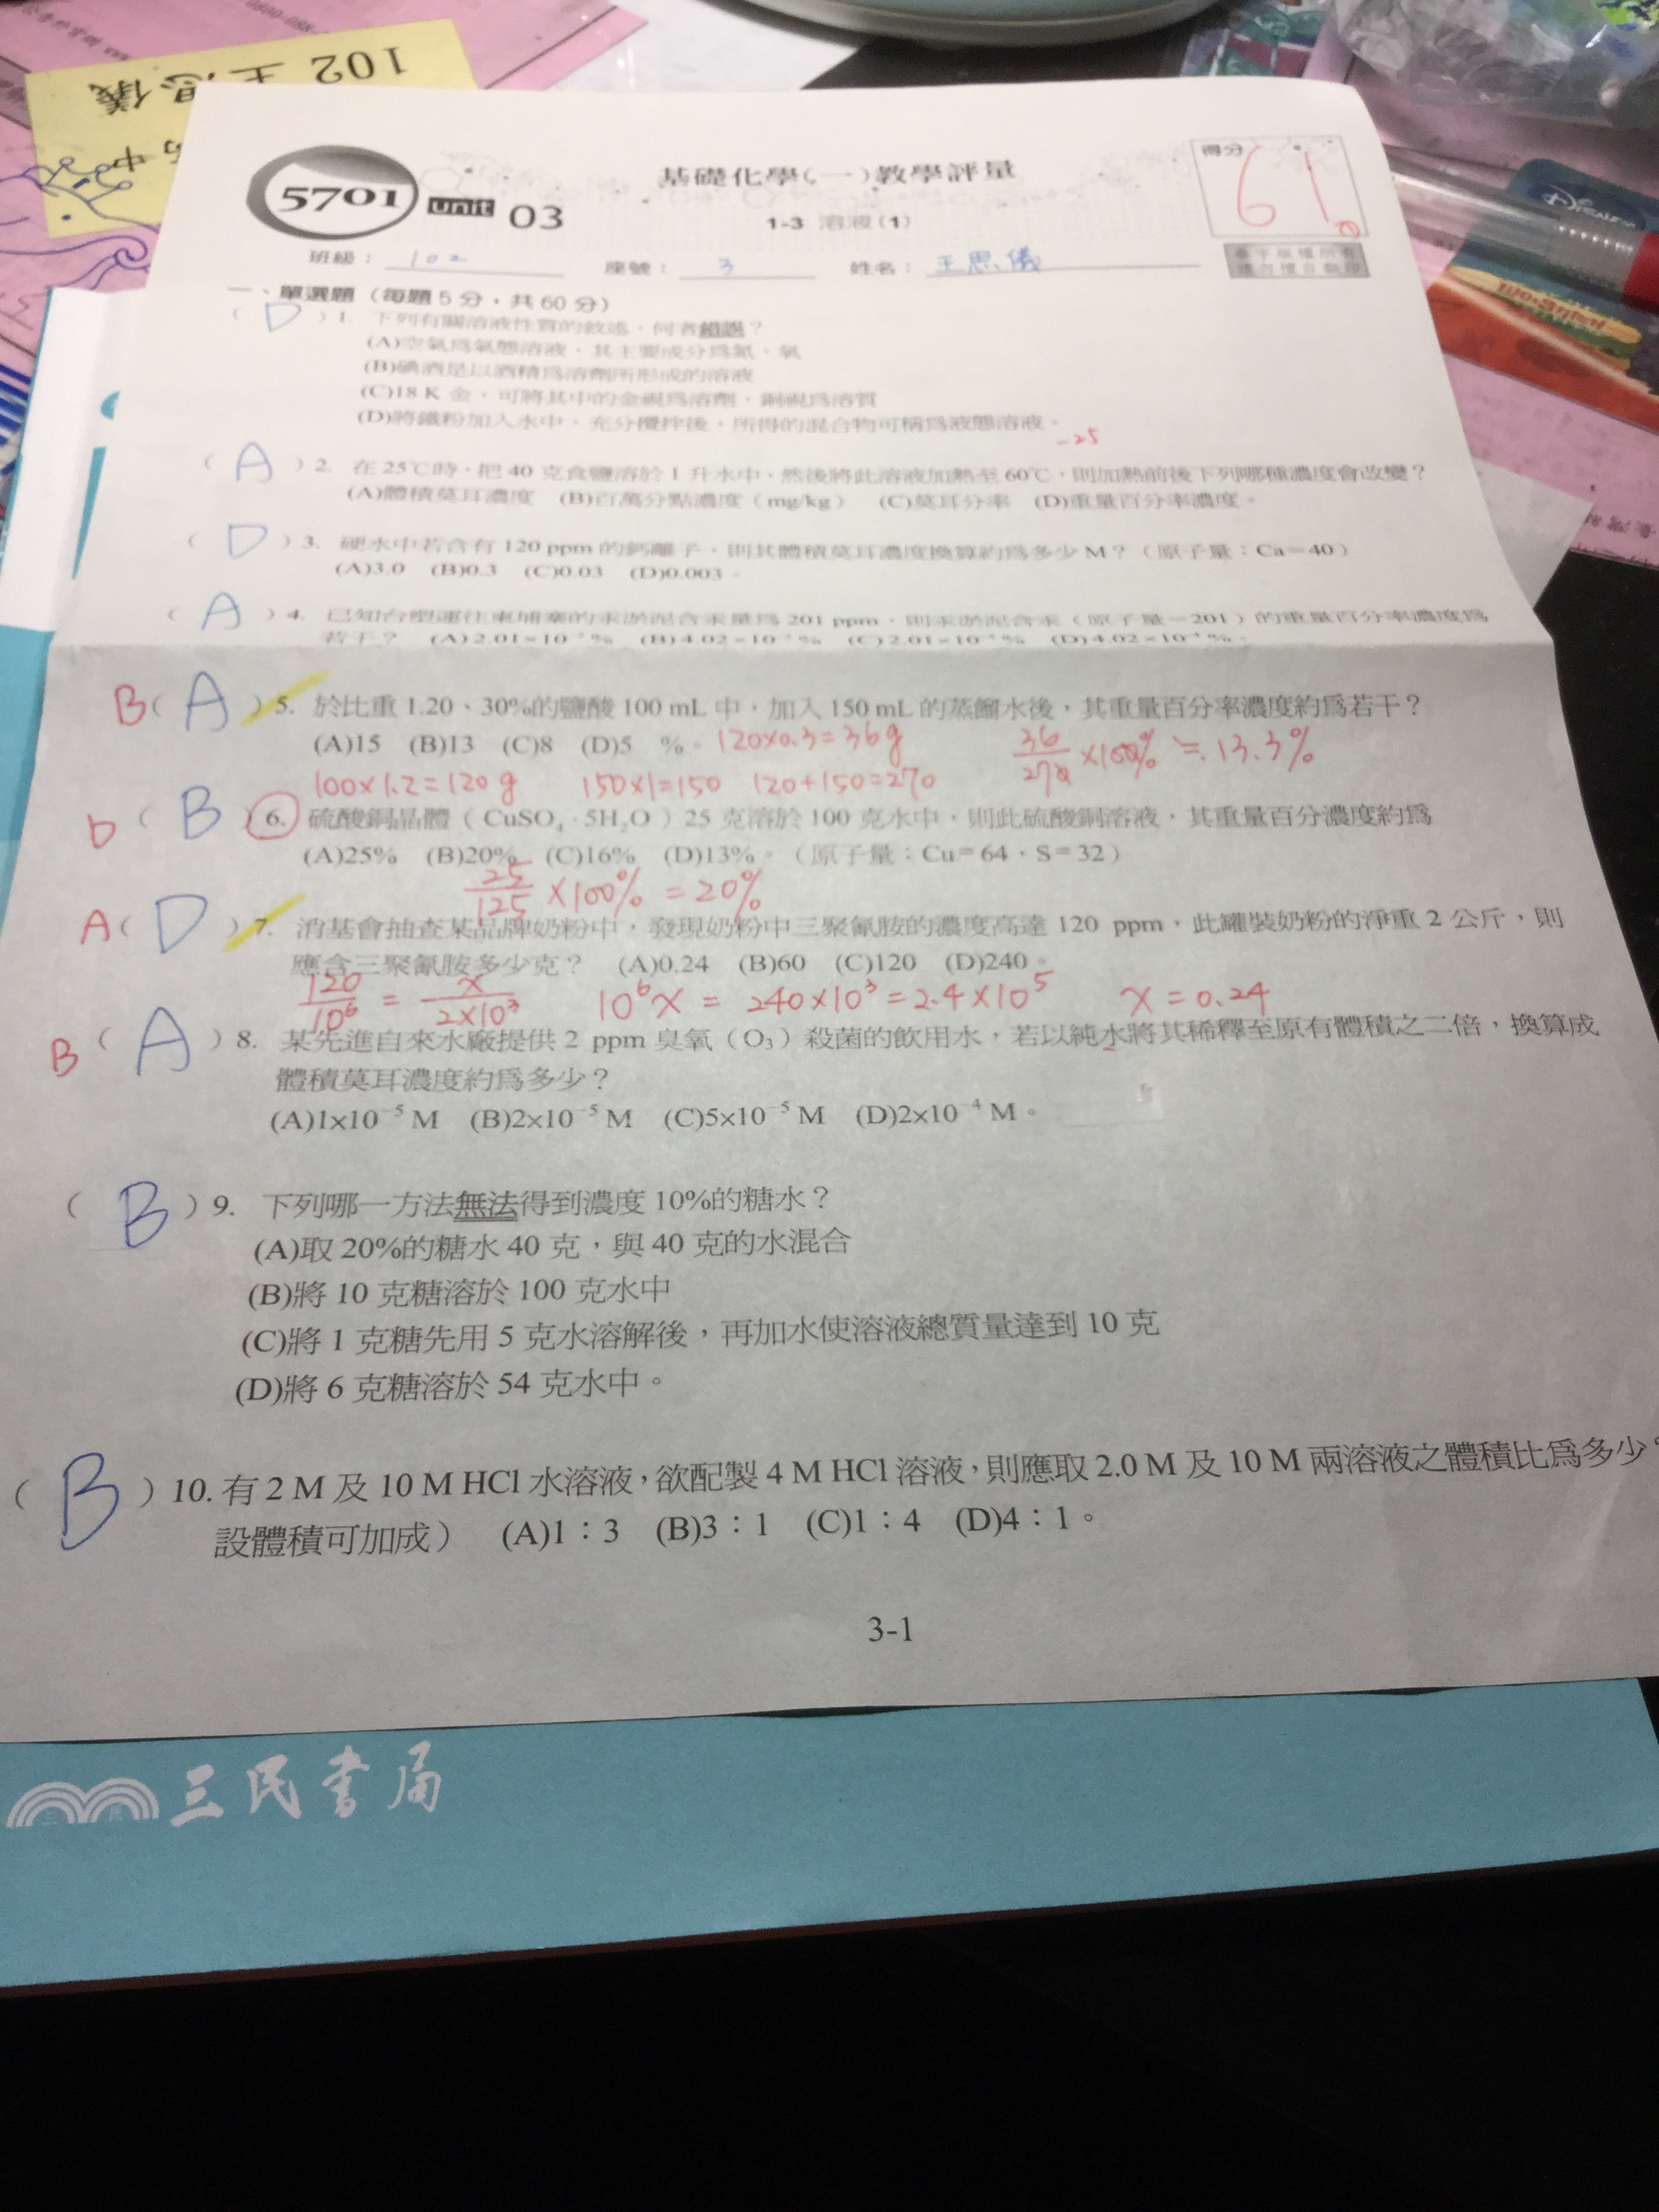 102 王思儀
5701 unit 03
基礎化學(一)教學評量
1-3 溶液(1)
得分
61
班級: 102 座號: 3 姓名: 王思儀
一、單選題(每題5分,共60分)
( D )1. 下列有關溶液性質的敘述,何者錯誤?
(A)空氣為氣態溶液,其主要成分為氮、氧
(B)碘酒是以酒精為溶劑所形成的溶液
(C)18 K 金,可將其中的金視為溶劑,銅視為溶質
(D)將鐵粉加入水中,充分攪拌後,所得的混合物可稱為液態溶液。
-25
( A )2. 在25℃時,把40克食鹽溶於1升水中,然後將此溶液加熱至60℃,則加熱前後下列哪種濃度會改變?
(A)體積莫耳濃度 (B)百萬分點濃度(mg/kg) (C)莫耳分率 (D)重量百分率濃度。
( D )3. 硬水中若含有120 ppm的鈣離子,則其體積莫耳濃度換算約為多少M?(原子量:Ca=40)
(A)3.0 (B)0.3 (C)0.03 (D)0.003。
( A )4. 已知台塑運往柬埔寨的汞淤泥含汞量為201 ppm,則汞淤泥含汞(原子量=201)的重量百分率濃度為
若干?
B( A )5. 於比重1.20、30%的鹽酸100 mL中,加入150 mL的蒸餾水後,其重量百分率濃度約爲若干?
(A)15 (B)13 (C)8 (D)5 %。 120×0.3=36g 36/270×100%≒13.3%
100×1.2=120g 150×1=150 120+150=270
D( B )6. 硫酸銅晶體(CuSO₄·5H₂O)25克溶於100克水中,則此硫酸銅溶液,其重量百分濃度約爲
(A)25% (B)20% (C)16% (D)13%。(原子量:Cu=64,S=32)
25/125×100%=20%
A( D )7. 消基會抽查某品牌奶粉中,發現奶粉中三聚氰胺的濃度高達120 ppm,此罐裝奶粉的淨重2公斤,則
應含三聚氰胺多少克? (A)0.24 (B)60 (C)120 (D)240。
120/10⁶=x/2×10³ 10⁶x=240×10³=2.4×10⁵ x=0.24
B( A )8. 某先進自來水廠提供2 ppm臭氧(O₃)殺菌的飲用水,若以純水將其稀釋至原有體積之二倍,換算成
體積莫耳濃度約爲多少?
(A)1×10⁻⁵ M (B)2×10⁻⁵ M (C)5×10⁻⁵ M (D)2×10⁻⁴ M。
( B )9. 下列哪一方法無法得到濃度10%的糖水?
(A)取20%的糖水40克,與40克的水混合
(B)將10克糖溶於100克水中
(C)將1克糖先用5克水溶解後,再加水使溶液總質量達到10克
(D)將6克糖溶於54克水中。
( B )10. 有2 M及10 M HCl水溶液,欲配製4 M HCl溶液,則應取2.0 M及10 M兩溶液之體積比爲多少
設體積可加成) (A)1:3 (B)3:1 (C)1:4 (D)4:1。
3-1
三民書局